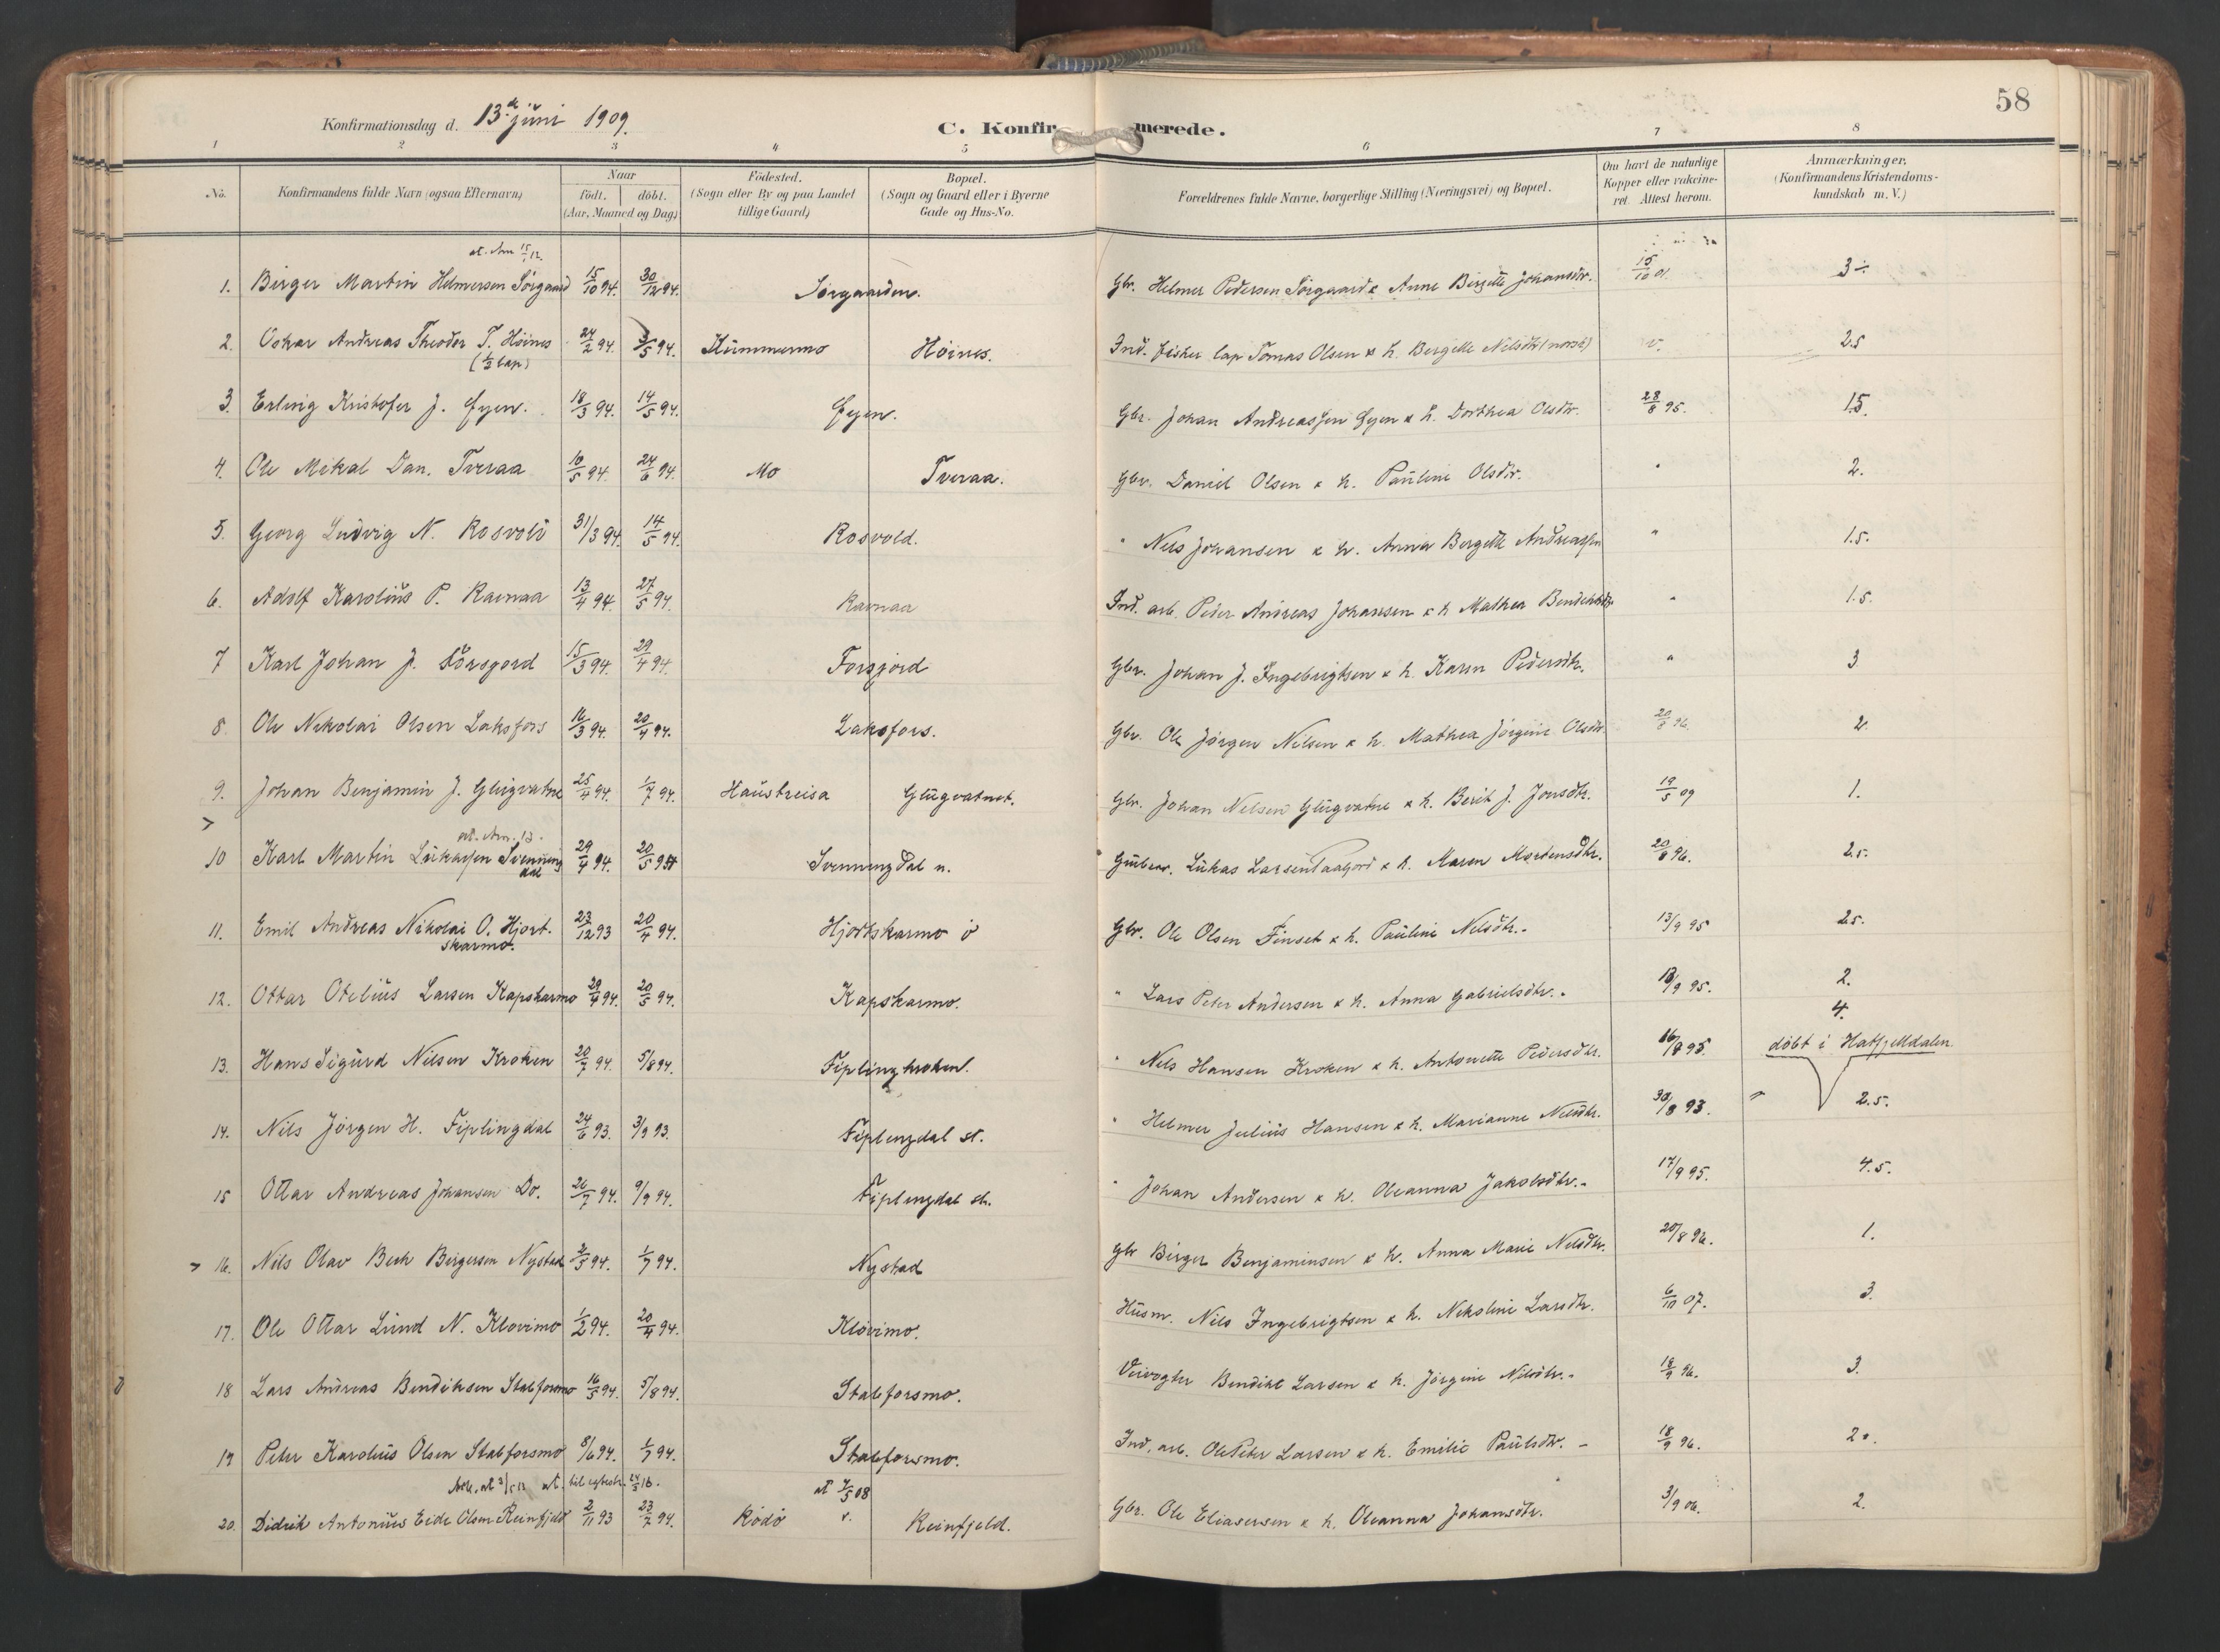 58
Konfirmationsdag d. 13de juni 1909.
C. Konfirmerede.
1 2 3 4 5 6 7 8
No. Konfirmandens fulde Navn (ogsaa Efternavn) Naar födt. döbt. (Aar, Maaned og Dag) Födested. (Sogn eller By og paa Landet tillige Gaard) Bopæl. (Sogn og Gaard eller i Byerne Gade og Hus-No. Forældrenes fulde Navne, borgerlige Stilling (Næringsvei) og Bopæl. Om havt de naturlige Kopper eller vakcineret. Attest herom. Anmærkninger. (Konfirmandens Kristendomskundskab m. V.)
at. Am 15/1 12.
1. Birger Martin Helmersen Sörgaard 15/10 94. 30/12 94. Sörgaarden. Gbr. Helmer Pedersen Sörgaard & Anne Bergitte Johansdtr. 15/10 01. 3÷
2. Oskar Andreas Theodor T. Höines 24/2 94. 3/5 94. Kummermo Höines. Ind. fisker lap Tomas Olsen & h. Bergitte Nilsdtr (norsk) v. 2.5
(½ lap)
3. Erling Kristofer J. Øyen. 18/3 94. 14/5 94. Øyen. Gbr. Johan Andreassen Øyen & h. Dorthea Olsdtr. 28/8 95. 1.5.
4. Ole Mikal Dan. Tveraa 10/5 94. 24/6 94. Mo Tveraa. Gbr. Daniel Olsen & h. Pauline Olsdtr. " 2.
5. Georg Ludvig N. Rosvold 31/3 94. 14/5 94. Rosvold. " Nels Johansen & h. Anna Bergitte Andreassen " 1.5.
6. Adolf Karolius P. Ravnaa 13/4 94. 27/5 94. Ravnaa Ind. arb. Peder Andreas Johansen & h Mathea Bendiktsdtr " 1.5.
7 Karl Johan J. Forsjord 15/3 94. 29/4 94. Forsjord Gbr. Johan J. Ingebrigtsen & h. Karen Pedersdtr. " 3
8. Ole Nikolai Olsen Laksfors 16/3 94. 20/4 94. Laksfors. Gbr. Ole Jörgen Nilsen & h. Mathea Jörgine Olsdtr. 20/8 96. 2.
9. Johan Benjamin J. Glugvatne 25/4 94. 1/7 94. Haustreisa Glugvatnet. Gbr. Johan Nelsen Glugvatne & h. Berit J. Jonsdtr. 19/5 09 1.
at. Am. 13.
10 Karl Martin Lukassen Svenningdal 29/4 94. 20/5 94 Svenningdal n. Lukas Larsen Taagjord & h. Maren Mortensdtr. 20/8 96. 2.5.
11. Emil Andreas Nikolai O. Hjortskarmo. 23/12 93 20/4 94. Hjortskarmo ö Gbr. Ole Olsen Finset & h. Pauline Nilsdtr. 13/9 95 2.5.
12. Ottar Otelius Larsen Kapskarmo 29/4 94. 20/5 94. Kapskarmo. " Lars Peter Andersen & h. Anna Gabrielsdtr. 18/9 95. 2.
4.
13. Hans Sigurd Nilsen Kroken 20/7 94. 5/8 94. Fiplingkroken. " Nels Hansen Kroken & h. Antonette Pedersdtr. 16/9 95. döbt i Hatfjelldalen.
14. Nils Jörgen H. Fiplingdal 24/6 93. 3/9 93. Fiplingdal st. " Helmer Julius Hansen & h. Marianne Nelsdtr. 30/8 93. " 2.5.
15 Ottar Andreas Johansen Do. 26/7 94. 9/9 94. Fiplingdal st. " Johan Andersen & h. Oleanna Jakobsdtr. 17/9 95. 4.5.
16. Nils Olav Bech Bergersen Nystad 2/5 94. 1/7 94. Nystad Gbr Birger Benjaminsen & h. Anna Marie Nelsdtr. 20/8 96. 1.
17. Ole Ottar Lund N. Klovimo 1/2 94. 20/4 94. Klovimo. Husm. Nils Ingebrigtsen & h. Nekoline Larsdtr. 6/10 07. 3.
18 Lars Andreas Bendiksen Stabforsmo 16/5 94. 5/8 94. Stabforsmo. Veivogter Bendikt Larsen & h. Jörgine Nilsdtr. 18/9 96. 3.
19 Peter Karolius Olsen Stabforsmo 8/6 94. 1/7 94. Stabforsmo. Ind. arb. Ole Peter Larsen & h. Emilie Paulsdtr. 18/9 96. 2.
at 7/5 08
20. Didrik Antonius Eide Olsen Reinfjeld 2/11 93 23/7 94. Rödö Reinfjeld. Gbr. Ole Eliasersen & h. Oleanna Johansdtr. 3/9 06. 2.